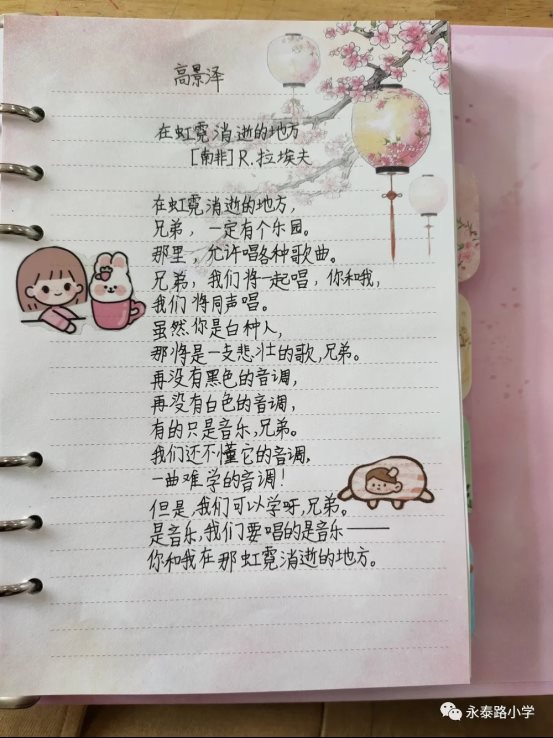 高景泽
在虹霓消逝的地方
[南非]R.拉埃夫
在虹霓消逝的地方，
兄弟，一定有个乐园。
那里，允许唱各种歌曲。
兄弟，我们将一起唱，你和我，
我们将同声唱。
虽然你是白种人，
那将是一支悲壮的歌，兄弟。
再没有黑色的音调，
再没有白色的音调，
有的只是音乐，兄弟。
我们还不懂它的音调，
一曲难学的音调！
但是，我们可以学呀，兄弟。
是音乐，我们要唱的是音乐——
你和我在那虹霓消逝的地方。
永泰路小学